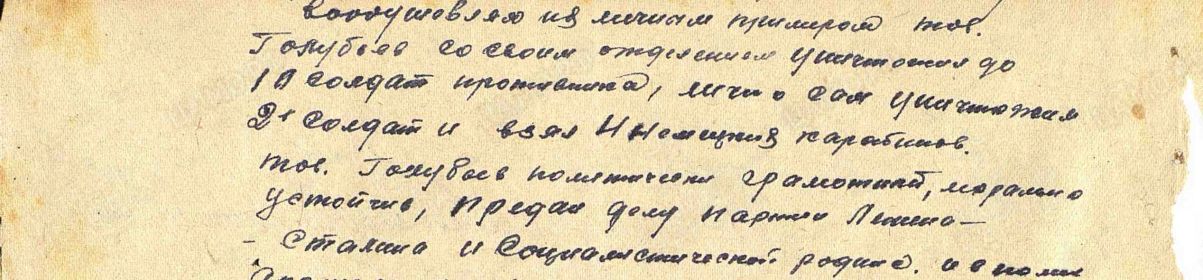 воодушевляя их личным примером тов.
Голубьев со своим отделением уничтожил до
10 солдат противника, лично сам уничтожил
2х солдат и взял 4 немецких карабинов.
тов. Голубьев политически грамотный, морально
устойчив, предан делу партии Ленина-
- Сталина и социалистической родине.